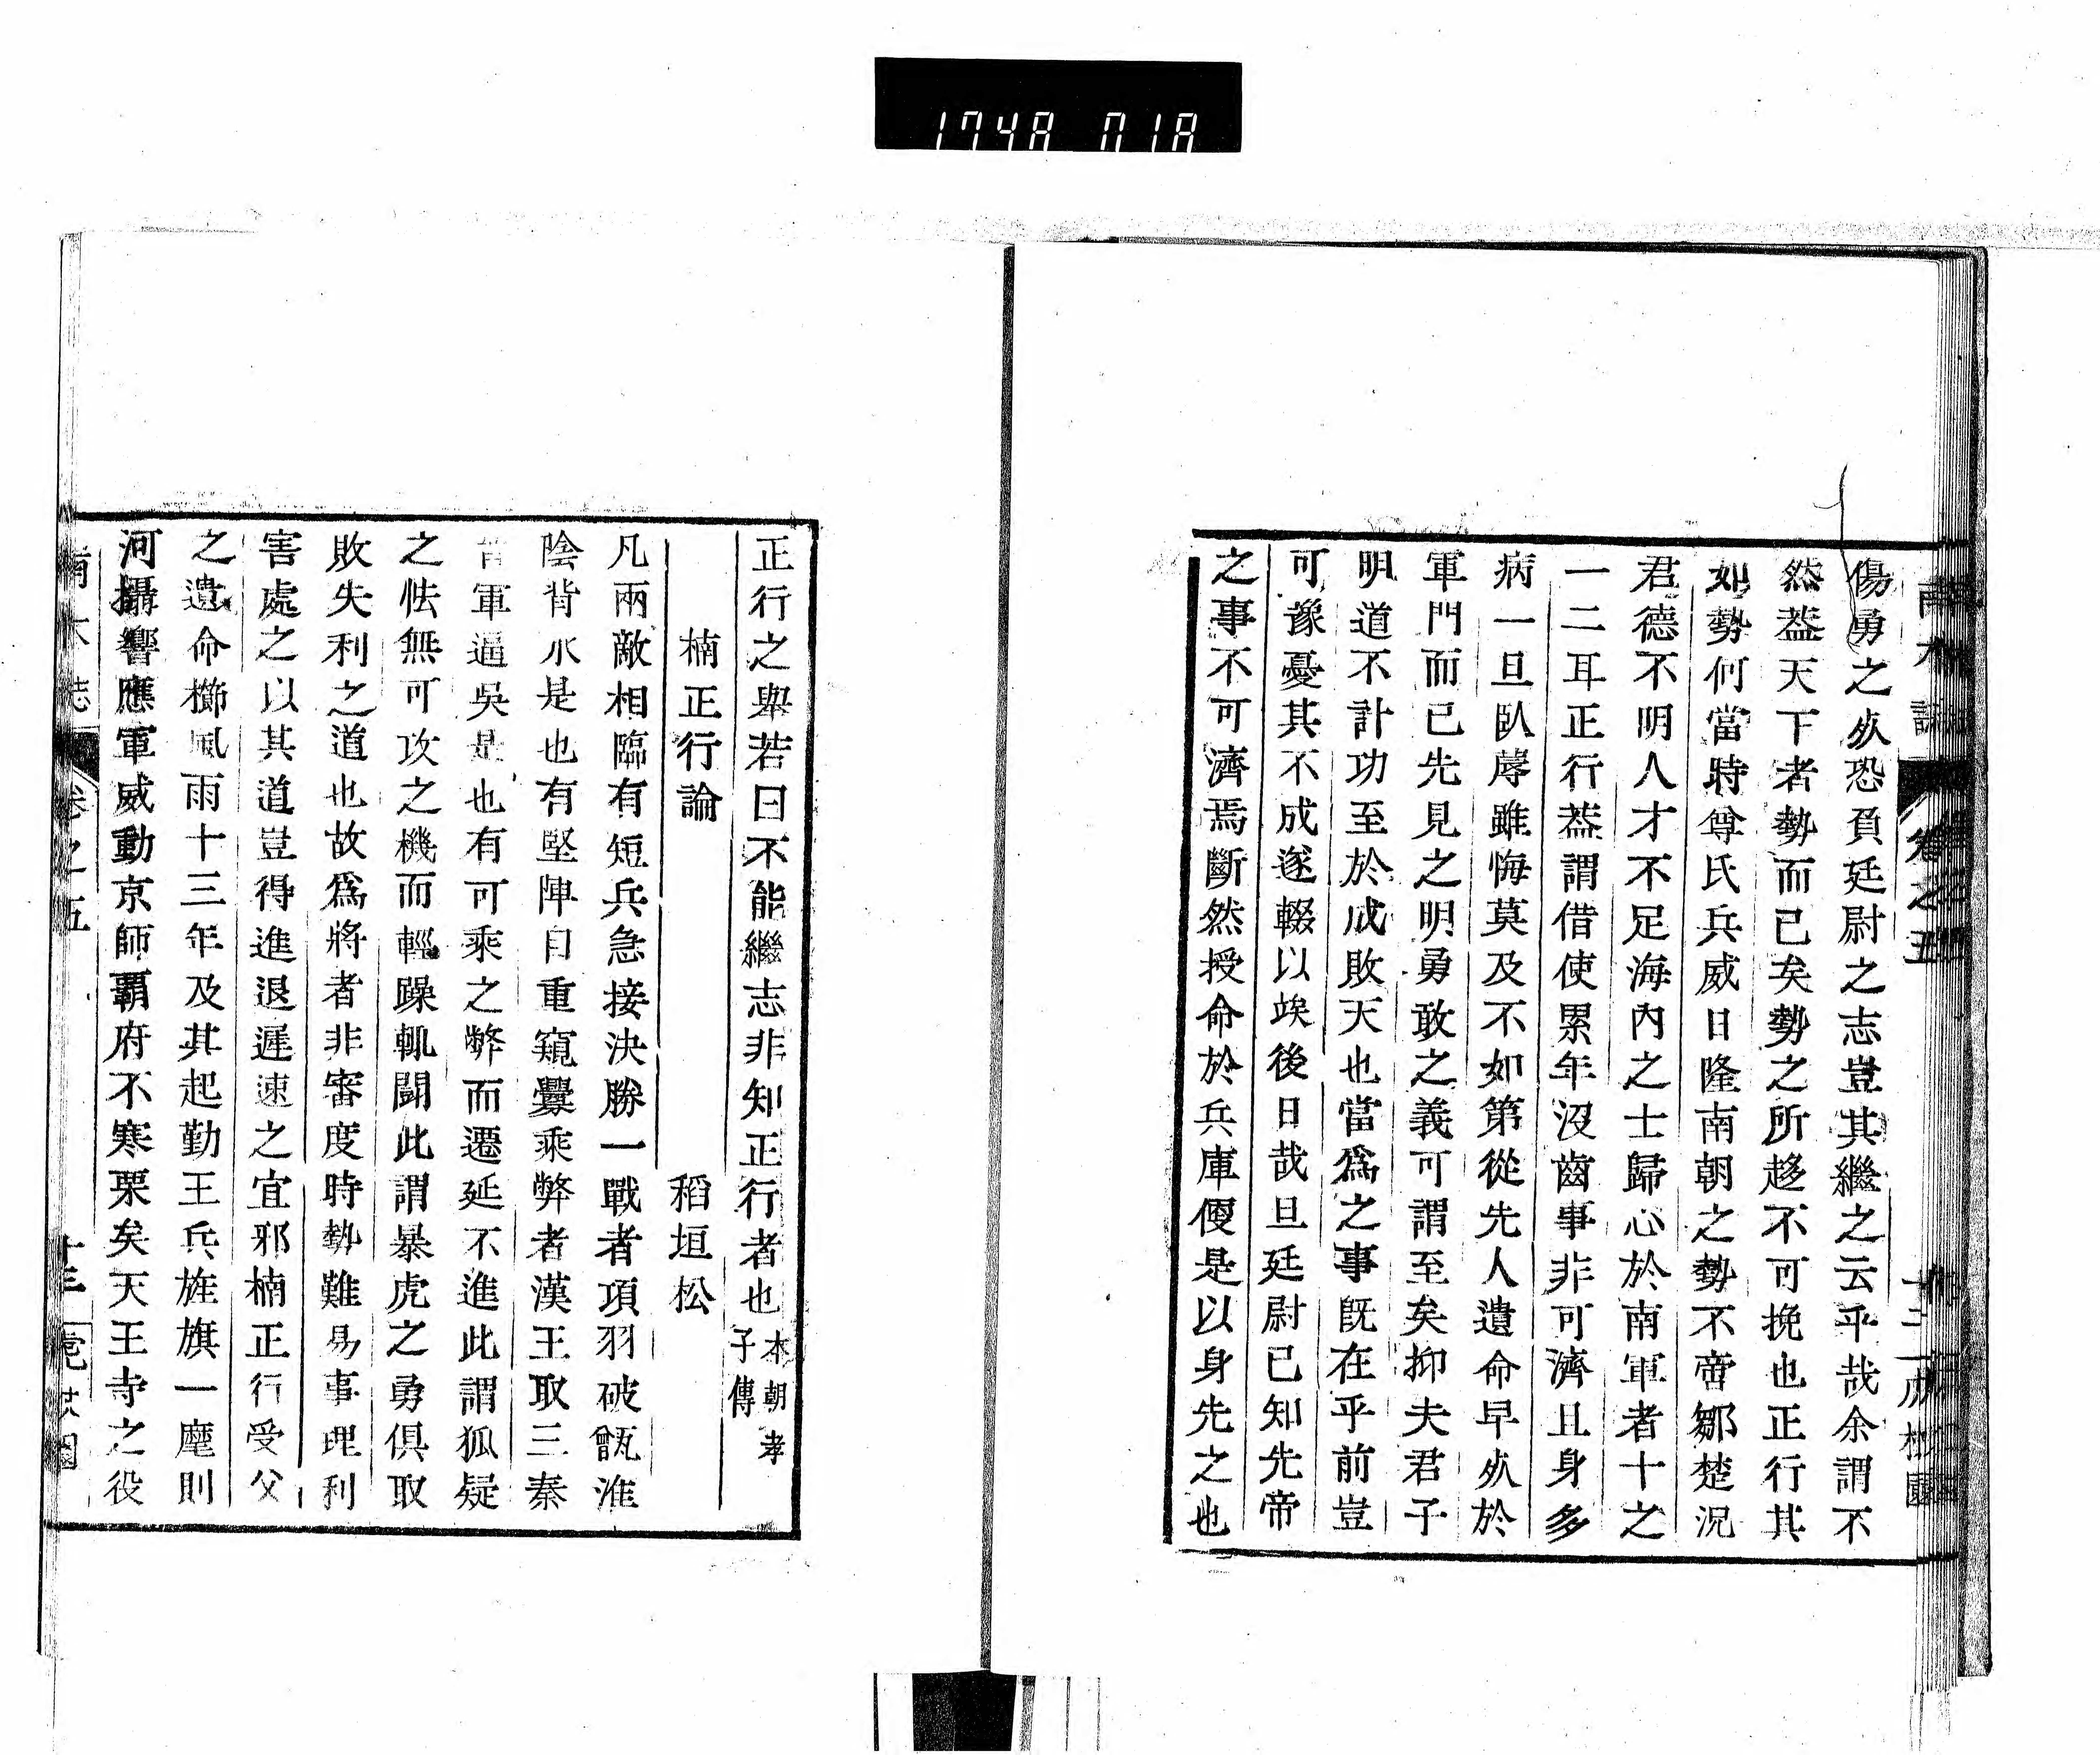 1748 018
傷勇之㱰恐負廷尉之志豈其繼之云乎哉余謂不
然葢天下者勢而已矣勢之所趍不可挽也正行其
如勢何當時尊氏兵威日隆南朝之勢不啻鄒楚況
君德不明人才不足海內之士歸心於南軍者十之
一二耳正行葢謂借使累年沒齒事非可濟且身多
病一旦臥蓐雖悔莫及不如第從先人遺命早㱰於
軍門而已先見之明勇敢之義可謂至矣抑夫君子
明道不計功至於成敗天也當爲之事旣在乎前豈
可豫憂其不成遂輟以竢後日哉且廷尉已知先帝
之事不可濟焉斷然授命於兵庫便是以身先之也
正行之舉若曰不能繼志非知正行者也本朝孝子傳
楠正行論 稻垣松
凡兩敵相臨有短兵急接決勝一戰者項羽破甑淮
陰背水是也有堅陣自重窺釁乘弊者漢王取三秦
晉軍逼吳是也有可乘之弊而遷延不進此謂狐疑
之怯無可攻之機而輕躁輒鬪此謂暴虎之勇俱取
敗失利之道也故爲將者非審度時勢難易事理利
害處之以其道豈得進退遲速之宜邪楠正行受父
之遺命櫛風雨十三年及其起勤王兵旌旗一麾則
河攝響應軍威動京師覇府不寒栗矣天王寺之役
卷之五